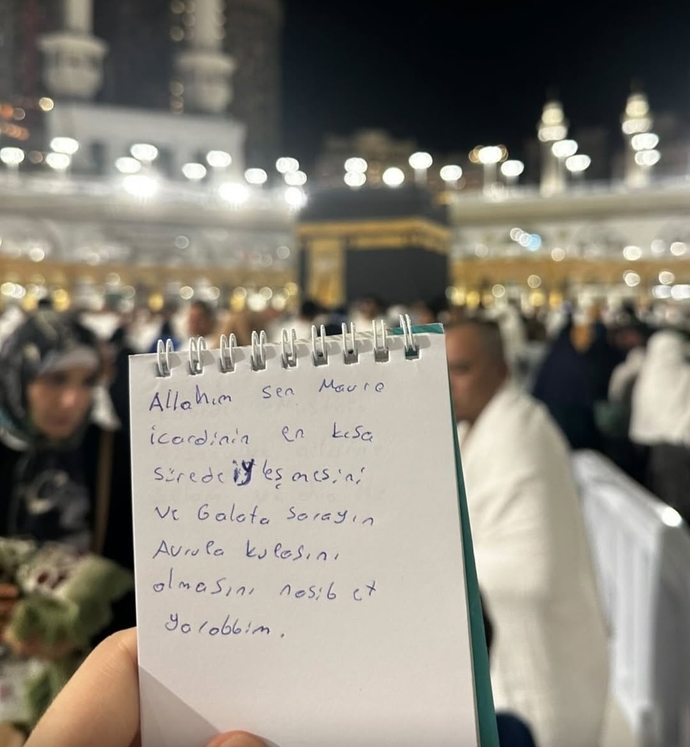 Allahım sen Mauro
icardinin en kısa
sürede iyleşmesini
ve Galata Sarayın
Avrupa kulasını
olmasını nasib et
Yarabbim.